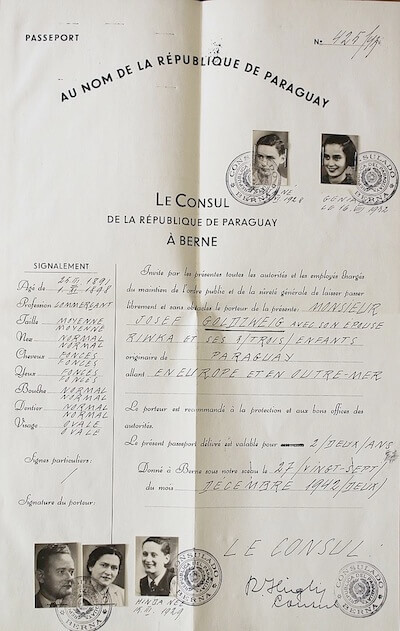 PASSEPORT
No 425/42.
AU NOM DE LA RÉPUBLIQUE DE PARAGUAY
CONSULADO
BERNA
CONSULADO
BERNA
NÉ
1928
GENIA
LE CONSUL
DE LA RÉPUBLIQUE DE PARAGUAY
À BERNE
SIGNALEMENT
Agé de 26 III 1891
1. VI 1898
Profession COMMERÇANT
Taille MOYENNE
MOYENNE
Nez NORMAL
NORMAL
Cheveux FONCES
FONCES
Yeux FONCES
FONCES
Bouche NORMAL
NORMAL
Dentier NORMAL
NORMAL
Visage OVALE
OVALE
Signes particuliers:
/
Signature du porteur:
Invite par les présentes toutes les autorités et les employés chargés
du maintien de l'ordre public et de la sûreté générale de laisser passer
librement et sans obstacles le porteur de la présente: MONSIEUR
JOSEF GOLDZWEIG AVEC SON EPOUSE
RYWKA ET SES 3/TROIS/ENFANTS
originaire de PARAGUAY
allant EN EUROPE ET EN OUTRE-MER
Le porteur est recommandé à la protection et aux bons offices des
autorités.
Le présent passeport délivré est valable pour 2/DEUX/ANS
Donné à Berne sous notre sceau le 27/VINGT-SEPT/
du mois DECEMBRE 1942/DEUX/
LE CONSUL:
R. Hügli
Consul
CONSULADO
BERNA
BERNA
CONSULADO
BERNA